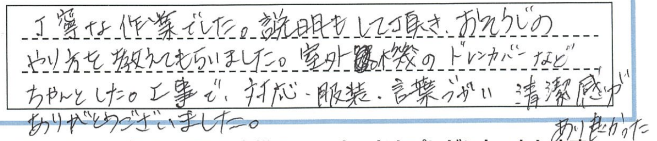 丁寧な作業でした。説明もして頂き、おそうじの
やり方を教えてもらいました。室外機のドレンカバーなど
ちゃんとした。工事で、対応・服装・言葉づかい 清潔感が
ありがとうございました。 あり良かった